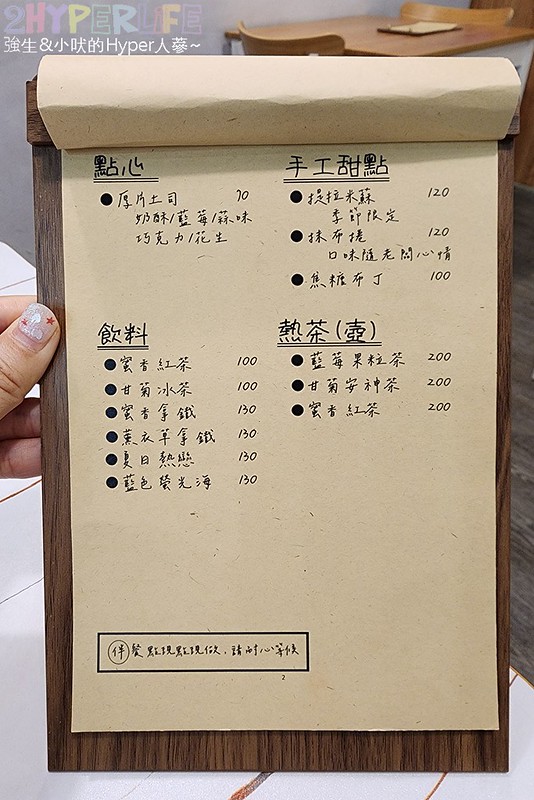 2HYPERLIFE
強生&小吠的Hyper人蔘~
點心
●厚片土司 70
奶酥/藍莓/蒜味
巧克力/花生
手工甜點
●提拉米蘇 120
季節限定
●抹布捲 120
口味隨老闆心情
●焦糖布丁 100
飲料
●蜜香紅茶 100
●甘菊冰茶 100
●蜜香拿鐵 130
●薰衣草拿鐵 130
●夏日熱戀 130
●藍色螢光海 130
熱茶(壺)
●藍莓果粒茶 200
●甘菊安神茶 200
●蜜香紅茶 200
伴餐點現點現做,請耐心等候
2